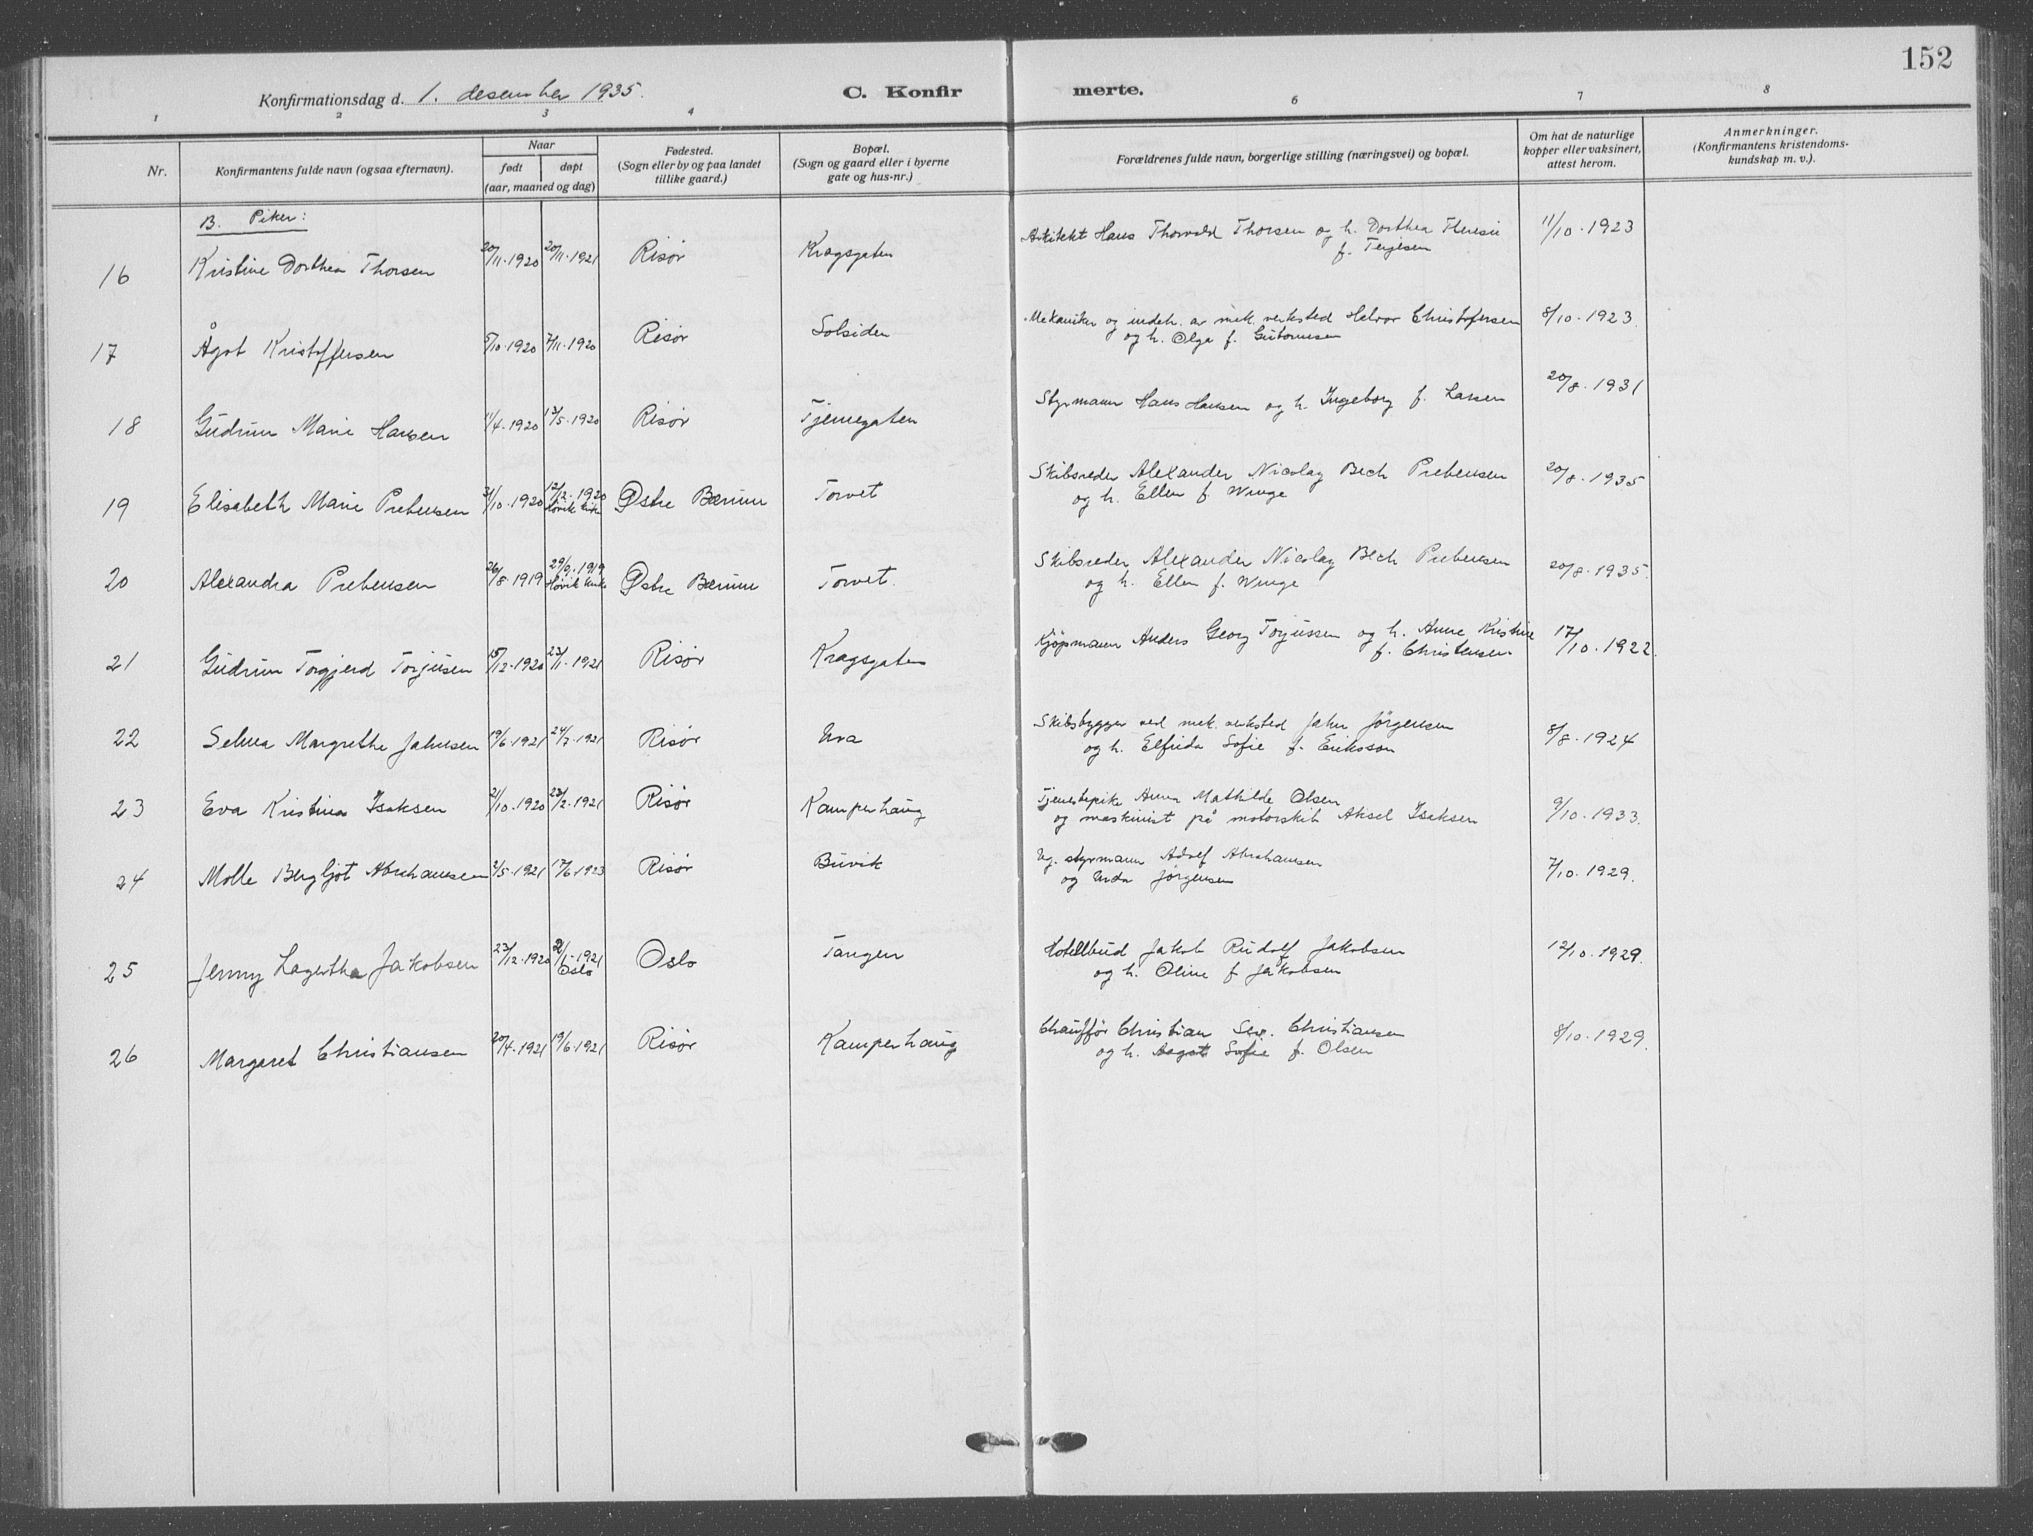 152
Konfirmationsdag d. 1. desember 1935. C. Konfirmerte.
1 2 3 4 6 7 8
Nr. Konfirmantens fulde navn (ogsaa efternavn). Naar født døpt (aar, maaned og dag) Fødested. (Sogn eller by og paa landet tillike gaard.) Bopæl. (Sogn og gaard eller i byerne gate og hus-nr.) Forældrenes fulde navn, borgerlige stilling (næringsvei) og bopæl. Om hat de naturlige kopper eller vaksinert, attest herom. Anmerkninger. (Konfirmantens kristendoms-kundskap m. v.).
B. Piker:
16 Kristine Dorthea Thorsen 20/11.1920 20/11.1921 Risør Kragsgaten Arkitekt Hans Thorvald Thorsen og h. Dorthea Theresie 11/10.1923
f. Terjesen
17 Ågot Kristoffersen 5/10.1920 7/11.1920 Risør Solsiden Mekaniker og indeh. av mek. verksted Halvor Christofersen 8/10.1923.
og h. Olga f. Gutormsen
18 Gudrun Marie Hansen 11/4.1920 13/5.1920 Risør Tjennegaten Styrmann Hans Hansen og h. Ingeborg f. Larsen 20/8.1931
19 Elisabeth Marie Prebensen 31/10.1920 12/12.1920 Østre Bærum Torvet Skibsreder Alexander Nicolay Bech Prebensen 20/8.1935
Høvik kirke og h. Ellen f. Winge
20 Alexandra Prebensen 26/8.1919 29/9.1919 Østre Bærum Torvet. Skibsreder Alexander Nicolay Bech Prebensen 20/8.1935.
Høvik kirke og h. Ellen f. Winge
21 Gudrun Torgjerd Torjusen 15/12.1920 23/1.1921 Risør Kragsgaten Kjøpmann Anders Georg Torjussen og h. Anne Kristine 17/10.1922.
f. Christensen
22 Selma Margrethe Jahnsen 19/6.1921 24/7.1921 Risør Ura Skibsbygger ved mek. verksted Jahn Jørgensen 8/8.1924
og h. Elfrida Sofie f. Eriksson
23 Eva Kristina Isaksen 21/10.1920 23/2.1921 Risør Kamperhaug Tjenestepike Anna Mathilde Olsen 9/10.1933.
og maskinist på motorskib Aksel Isaksen
24 Molle Bergljot Abrahamsen 2/5.1921 17/6.1923 Risør Buvik Ug. styrmann Adolf Abrahamsen 7/10.1929.
og Urda Jørgensen
25 Jenny Lagertha Jakobsen 23/12.1920 2/1.1921 Oslo Tangen Hotellbud Jakob Rudolf Jakobsen 12/10.1929.
Oslo og h. Oline f. Jakobsen
26 Margaret Christiansen 20/4.1921 19/6.1921 Risør Kamperhaug Chauffør Christian Sev. Christiansen 8/10.1929.
og h. Aagot Sofie f. Olsen